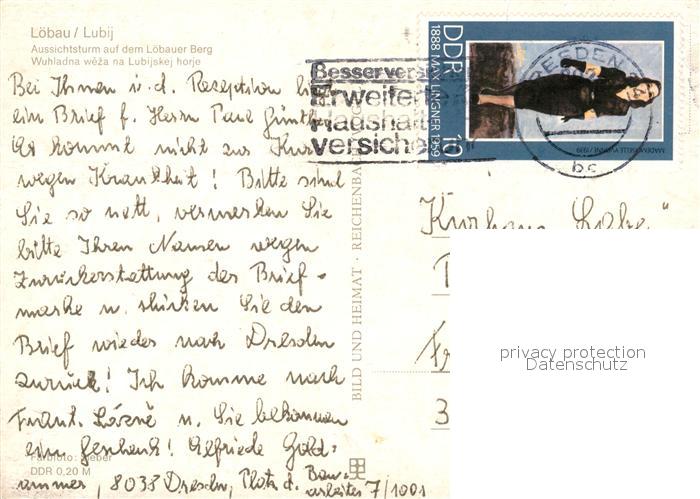 Löbau / Lubij
Aussichtsturm auf dem Löbauer Berg
Wuhladna wěža na Lubijskej horje
Bei Ihnen i. d. Rezeption liegt
ein Brief f. Herrn Paul Günther
Er kommt nicht zur Kur
wegen Krankheit! Bitte sind
Sie so nett, vermerken Sie
bitte Ihren Namen wegen
Zurückerstattung der Brief-
marke u. schicken Sie den
Brief wieder nach Dresden
zurück! Ich komme nach
Frant. Lázně u. Sie bekommen
ein Geschenk! Elfriede Gold-
ammer, 8038 Dresden, Platz d. Bau-
arbeiter 7/1001
Farbfoto: Weber
DDR 0,20 M
BILD UND HEIMAT · REICHENBACH
Besservers
Erweitert
Haushalt
versicher
DRESDEN
bc
DDR
1888 MAX LINGNER 1959
10
MADEMOISELLE YVONNE / 1939
Kurhaus
3
privacy protection
Datenschutz